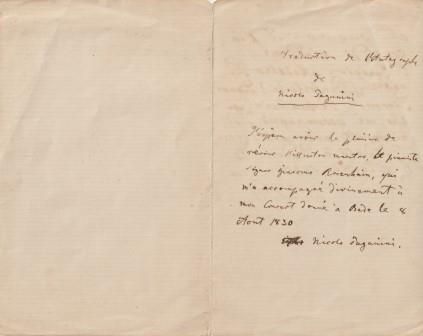 Traduction de l'Autographe
de
Nicolo Paganini
avoir le plaisir de
revoir le pianiste
Rosenhain, qui
m'a accompagné divinement à
mon Concert donné à Bade le 8
Aout 1830
Nicolo Paganini.